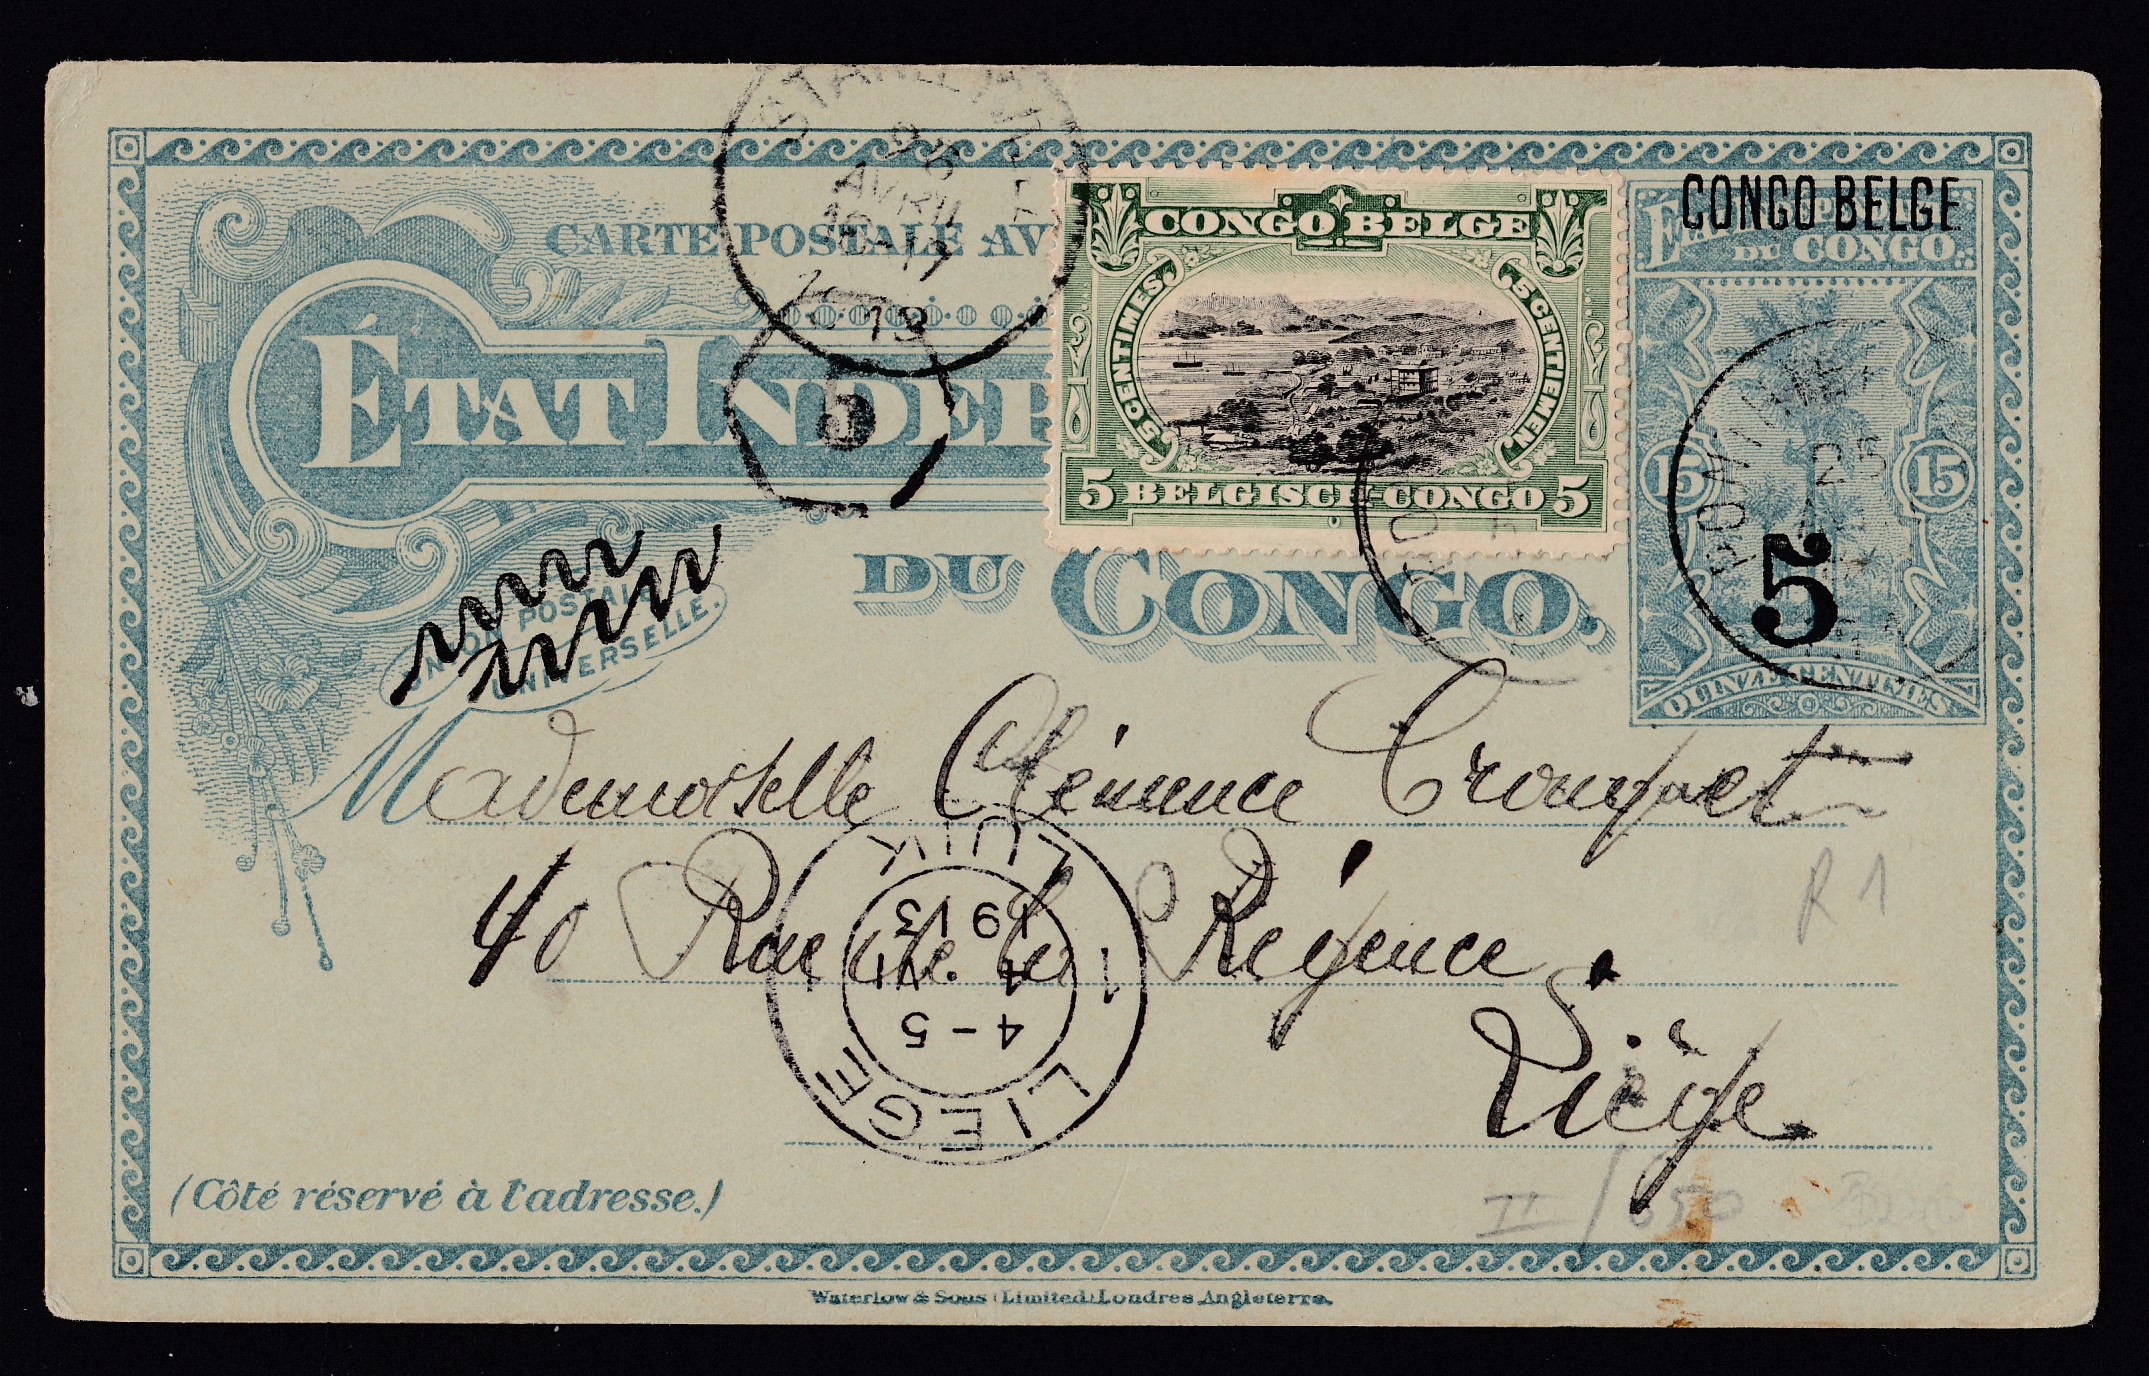 CARTE POSTALE AV
ÉTAT INDÉP
DU CONGO.
UNION POSTALE
UNIVERSELLE.
AVRIL
1913
5
CONGO BELGE
5 CENTIMES
5 CENTIEMEN
5 BELGISCH-CONGO 5
CONGO BELGE
ÉTAT
DU CONGO
15 15
25
5
QUINZE CENTIMES
Mademoiselle Clémence
40 Rue de la Régence
Liège
LIEGE 1 LUIK
4-5
4 VI
1913
R 1
II / 650
(Côté réservé à l'adresse.)
Waterlow & Sons (Limited) Londres Angleterre.